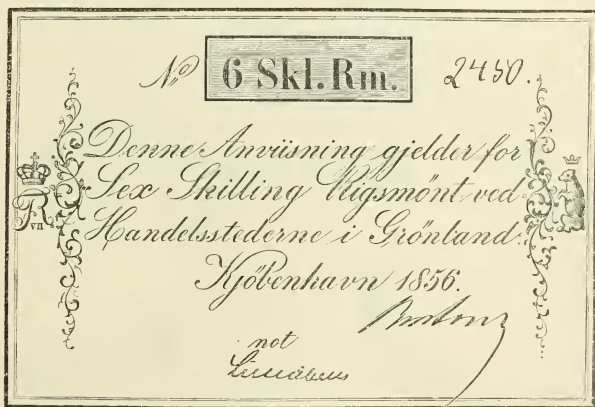 No 6 Skl. Rm. 2450.
Denne Anviisning gjelder for
Sex Skilling Rigsmönt ved
Handelsstederne i Grönland.
Kjöbenhavn 1856.
FR VII
not